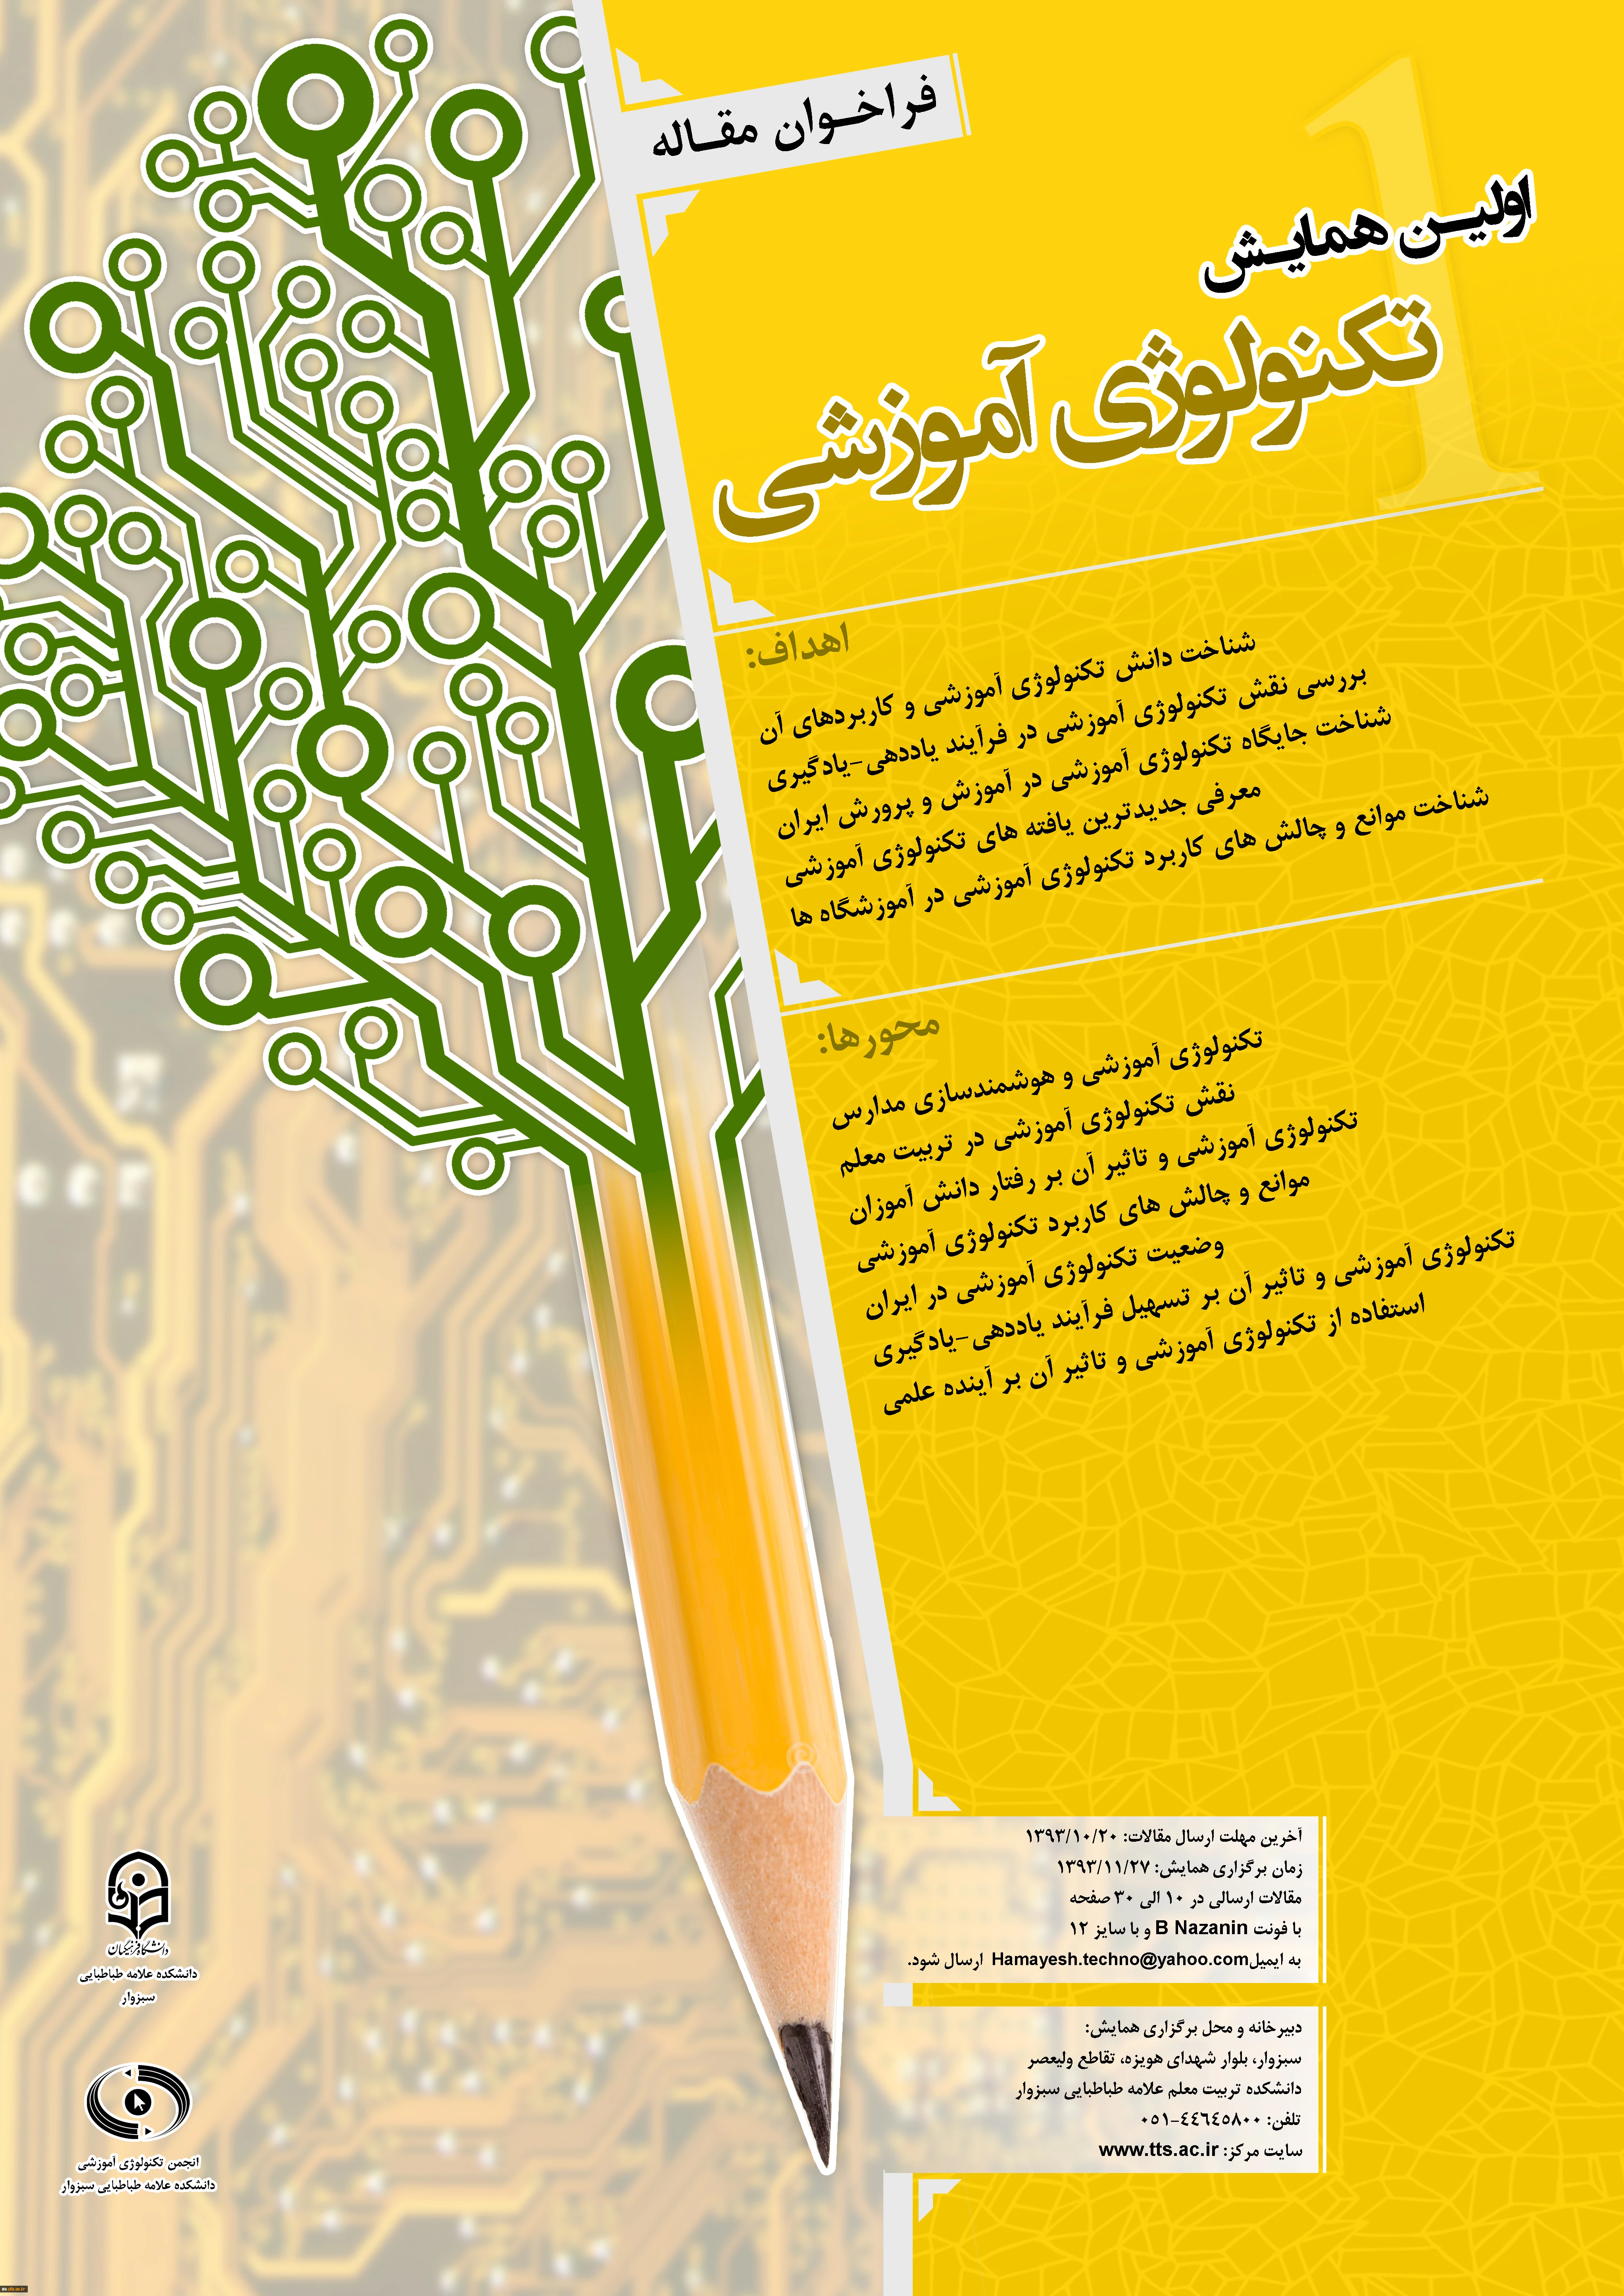 فراخوان مقاله
1
اولین همایش
تکنولوژی آموزشی
اهداف:
شناخت دانش تکنولوژی آموزشی و کاربردهای آن
بررسی نقش تکنولوژی آموزشی در فرآیند یاددهی-یادگیری
شناخت جایگاه تکنولوژی آموزشی در آموزش و پرورش ایران
معرفی جدیدترین یافته های تکنولوژی آموزشی
شناخت موانع و چالش های کاربرد تکنولوژی آموزشی در آموزشگاه ها
محورها:
تکنولوژی آموزشی و هوشمندسازی مدارس
نقش تکنولوژی آموزشی در تربیت معلم
تکنولوژی آموزشی و تاثیر آن بر رفتار دانش آموزان
موانع و چالش های کاربرد تکنولوژی آموزشی
وضعیت تکنولوژی آموزشی در ایران
تکنولوژی آموزشی و تاثیر آن بر تسهیل فرآیند یاددهی-یادگیری
استفاده از تکنولوژی آموزشی و تاثیر آن بر آینده علمی
آخرین مهلت ارسال مقالات: ۱۳۹۳/۱۰/۲۰
زمان برگزاری همایش: ۱۳۹۳/۱۱/۲۷
مقالات ارسالی در ۱۰ الی ۳۰ صفحه
با فونت B Nazanin و با سایز ۱۲
به ایمیل Hamayesh.techno@yahoo.com ارسال شود.
دبیرخانه و محل برگزاری همایش:
سبزوار، بلوار شهدای هویزه، تقاطع ولیعصر
دانشکده تربیت معلم علامه طباطبایی سبزوار
تلفن: ۴۴۶۴۵۸۰۰-۰۵۱
سایت مرکز: www.tts.ac.ir
دانشگاه فرهنگیان
دانشکده علامه طباطبایی
سبزوار
انجمن تکنولوژی آموزشی
دانشکده علامه طباطبایی سبزوار